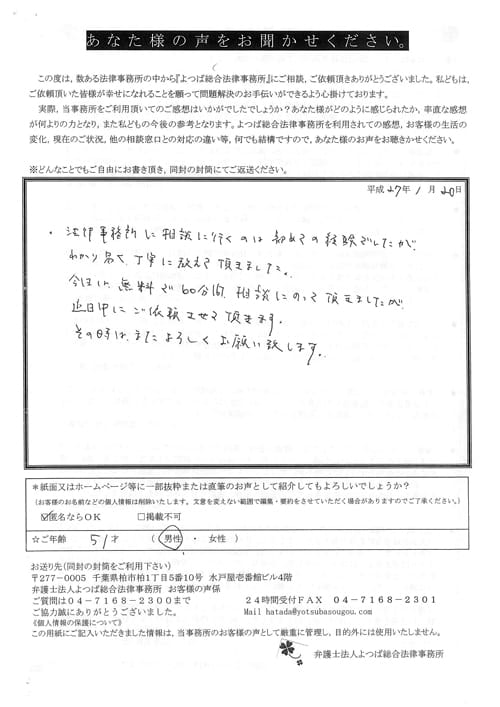 あなた様の声をお聞かせください。
この度は，数ある法律事務所の中から『よつば総合法律事務所』にご相談，ご依頼頂きありがとうございました。私どもは，
ご依頼頂いた皆様が幸せになれることを願って問題解決のお手伝いができるよう心掛けております。
実際，当事務所をご利用頂いてのご感想はいかがでしたでしょうか？あなた様がどのように感じられたか，率直な感想
が何よりの力となり，また私どもの今後の参考となります。よつば総合法律事務所を利用されての感想，お客様の生活の
変化，現在のご状況，他の相談窓口との対応の違い等，何でも結構ですので，あなた様のお声をお聴きかせください。
※どんなことでもご自由にお書き頂き，同封の封筒にてご返送ください。
平成27年1月20日
・法律事務所に相談に行くのは初めての経験でしたが、
わかり易く、丁寧に教えて頂きました。
今回は、無料で60分間、相談にのって頂きましたが
近日中にご依頼させて頂きます。
その時は、またよろしくお願い致します。
＊紙面又はホームページ等に一部抜粋または直筆のお声として紹介してもよろしいでしょうか？
（お客様のお名前などの個人情報は削除いたします。文意を変えない範囲で編集・要約をさせていただく場合がありますのでご了承ください。）
☑匿名ならOK　□掲載不可
☆ご年齢　51才　（男性・女性）
お送り先（同封の封筒をご利用下さい）
〒277-0005　千葉県柏市柏1丁目5番10号　水戸屋壱番館ビル4階
弁護士法人よつば総合法律事務所　お客様の声係
ご質問は04-7168-2300まで　24時間受付FAX　04-7168-2301
ご協力誠にありがとうございました。　Mail hatada@yotsubasougou.com
《個人情報の保護について》
この用紙にご記入いただきました情報は，当事務所のお客様の声として厳重に管理し，目的外には使用いたしません。
弁護士法人よつば総合法律事務所